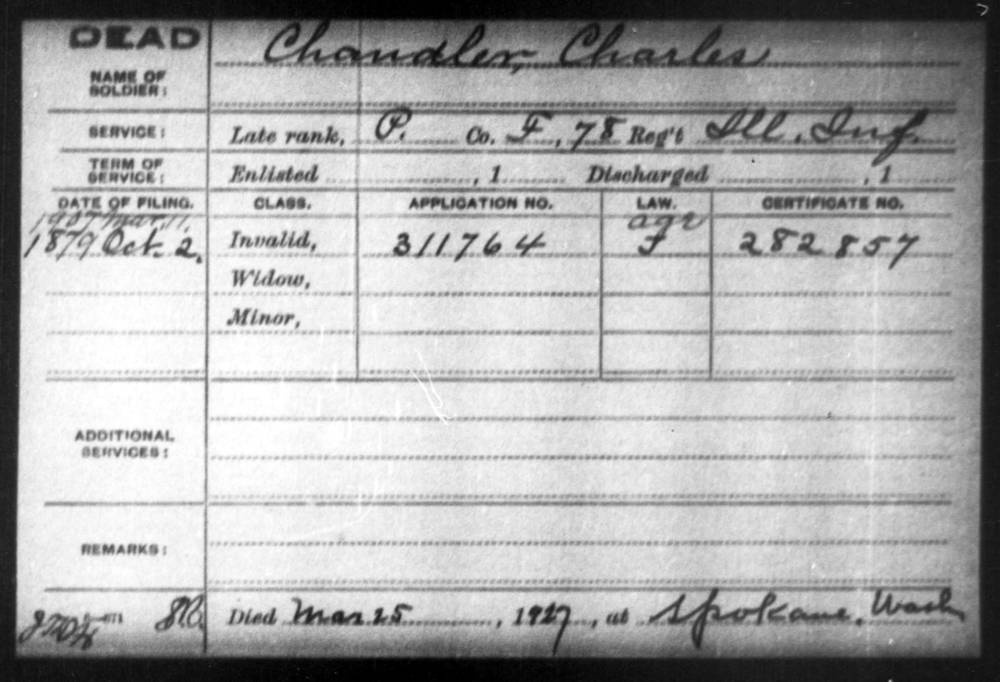 DEAD
NAME OF SOLDIER: Chandler, Charles
SERVICE: Late rank, P. Co. F, 78 Reg't Ill. Inf.
TERM OF SERVICE: Enlisted , 1 Discharged , 1
DATE OF FILING. CLASS. APPLICATION NO. LAW. CERTIFICATE NO.
1907 Mar. 11, age
1879 Oct. 2. Invalid, 311764 F 282857
Widow,
Minor,
ADDITIONAL SERVICES:
REMARKS:
Died Mar 25, 1927, at Spokane, Wash